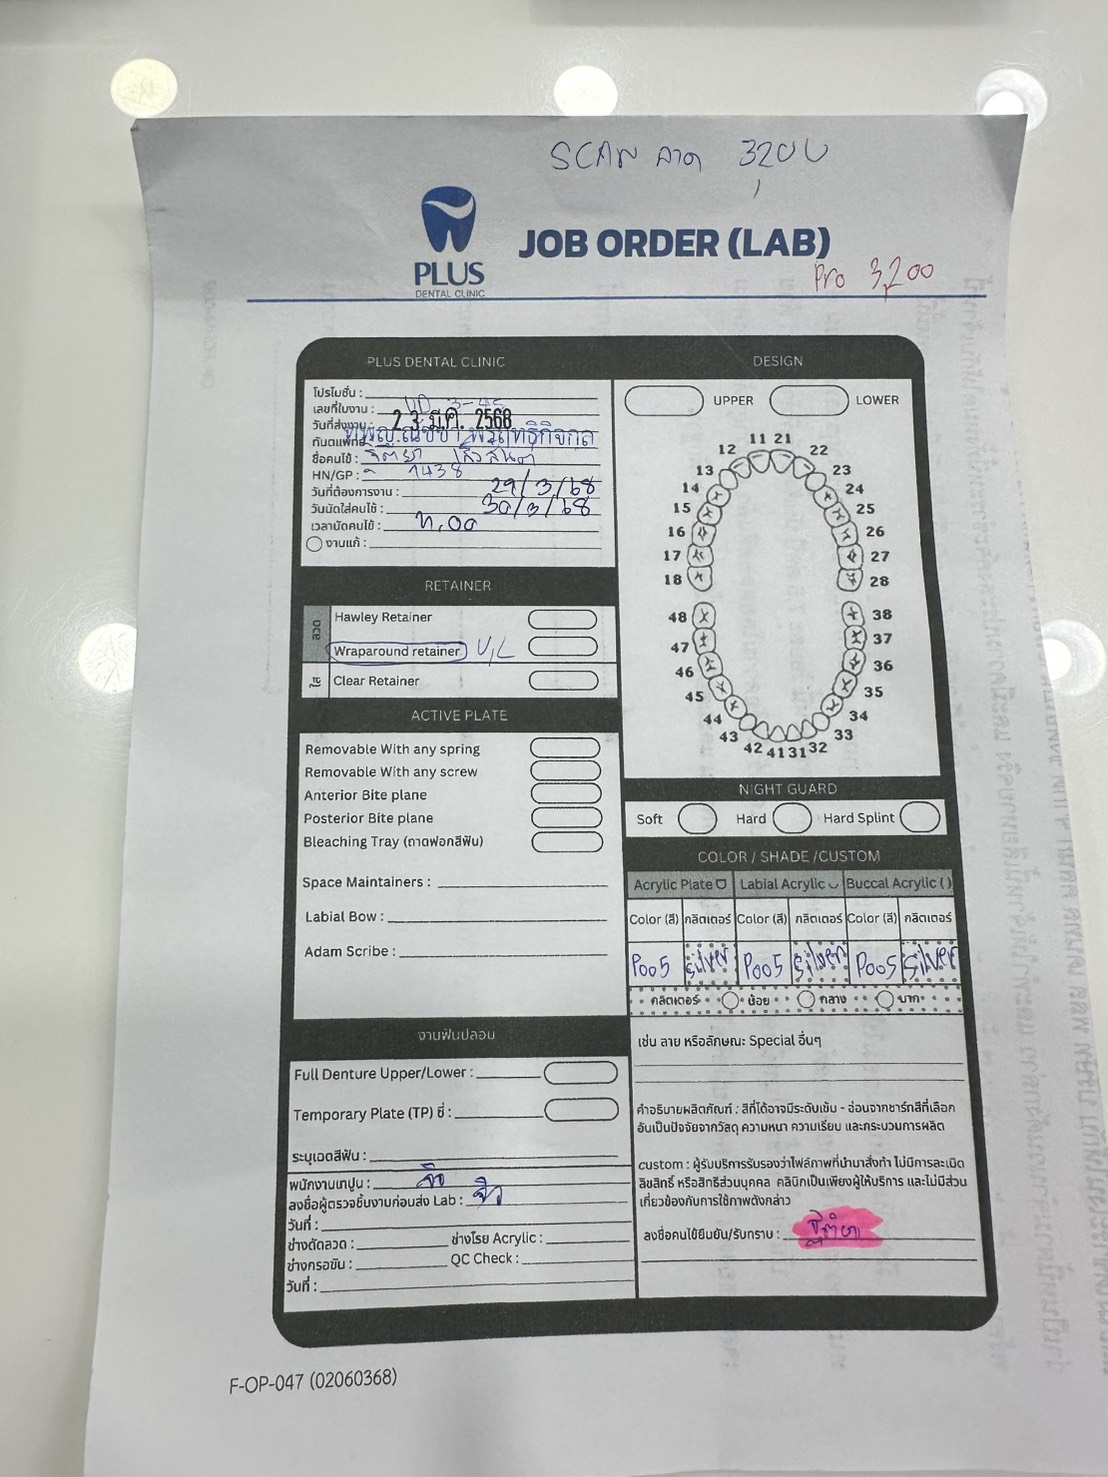 SCAN ลาด 3,200
PLUS
DENTAL CLINIC
JOB ORDER (LAB)
Pro 3,200
PLUS DENTAL CLINIC
โปรโมชั่น :
เลขที่ใบงาน : UD 3-45
วันที่ส่งงาน : 23 มี.ค. 2568
ทันตแพทย์
ชื่อคนไข้ :
HN/GP : 7438
วันที่ต้องการงาน : 29/3/68
วันนัดใส่คนไข้ : 30/3/68
เวลานัดคนไข้ :
งานแก้ :
RETAINER
ลวด
Hawley Retainer
Wraparound retainer U,L
ใส
Clear Retainer
ACTIVE PLATE
Removable With any spring
Removable With any screw
Anterior Bite plane
Posterior Bite plane
Bleaching Tray (ถาดฟอกสีฟัน)
Space Maintainers :
Labial Bow :
Adam Scribe :
งานฟันปลอม
Full Denture Upper/Lower :
Temporary Plate (TP) ซี่ :
ระบุเฉดสีฟัน :
พนักงานเทปูน : จิว
ลงชื่อผู้ตรวจชิ้นงานก่อนส่ง Lab : จิว
วันที่ :
ช่างดัดลวด : ช่างโรย Acrylic :
ช่างกรอขัน : QC Check :
วันที่ :
DESIGN
UPPER LOWER
11 21
12 22
13 23
14 24
15 25
16 26
17 27
18 28
48 38
47 37
46 36
45 35
44 34
43 33
42 41 31 32
NIGHT GUARD
Soft Hard Hard Splint
COLOR / SHADE /CUSTOM
Acrylic Plate Labial Acrylic Buccal Acrylic ( )
Color (สี) กลิตเตอร์ Color (สี) กลิตเตอร์ Color (สี) กลิตเตอร์
P005 Silver P005 Silver P005 Silver
กลิตเตอร์ น้อย กลาง มาก
เช่น ลาย หรือลักษณะ Special อื่นๆ
คำอธิบายผลิตภัณฑ์ : สีที่ได้อาจมีระดับเข้ม - อ่อนจากชาร์ทสีที่เลือก
อันเป็นปัจจัยจากวัสดุ ความหนา ความเรียบ และกระบวนการผลิต
custom : ผู้รับบริการรับรองว่าไฟล์ภาพที่นำมาสั่งทำ ไม่มีการละเมิด
ลิขสิทธิ์ หรือสิทธิส่วนบุคคล คลินิกเป็นเพียงผู้ให้บริการ และไม่มีส่วน
เกี่ยวข้องกับการใช้ภาพดังกล่าว
ลงชื่อคนไข้ยืนยัน/รับทราบ :
F-OP-047 (02060368)